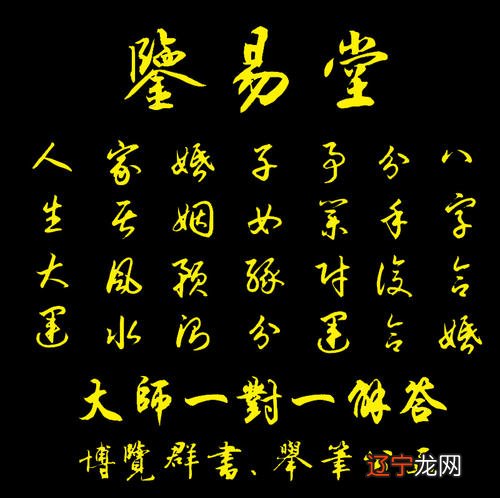 鑒易堂
八字合婚
分手復合
事業財運
子女緣分
婚姻預測
家居風水
人生大運
大師一對一解答
博覽群書、舉筆
辽宁龙网